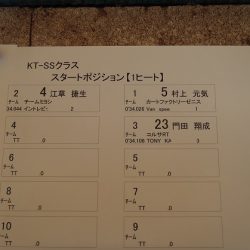 KT-SSクラス
スタートポジション【1ヒート】
2 4 江草 捷生
チーム チームミヨシ
34.044 イントレピ- 2
1 5 村上 元気
チーム カートファクトリーゼニス
0'34.026 Van speed 1
4
チーム
TT .0
3 23 門田 翔成
チーム コルサRT
0'34.108 TONY KA 3
6
チーム
TT .0
5
チーム
TT .0
8
チーム
TT .0
7
チーム
TT .0
10
チーム
TT .0
9
チーム
TT .0